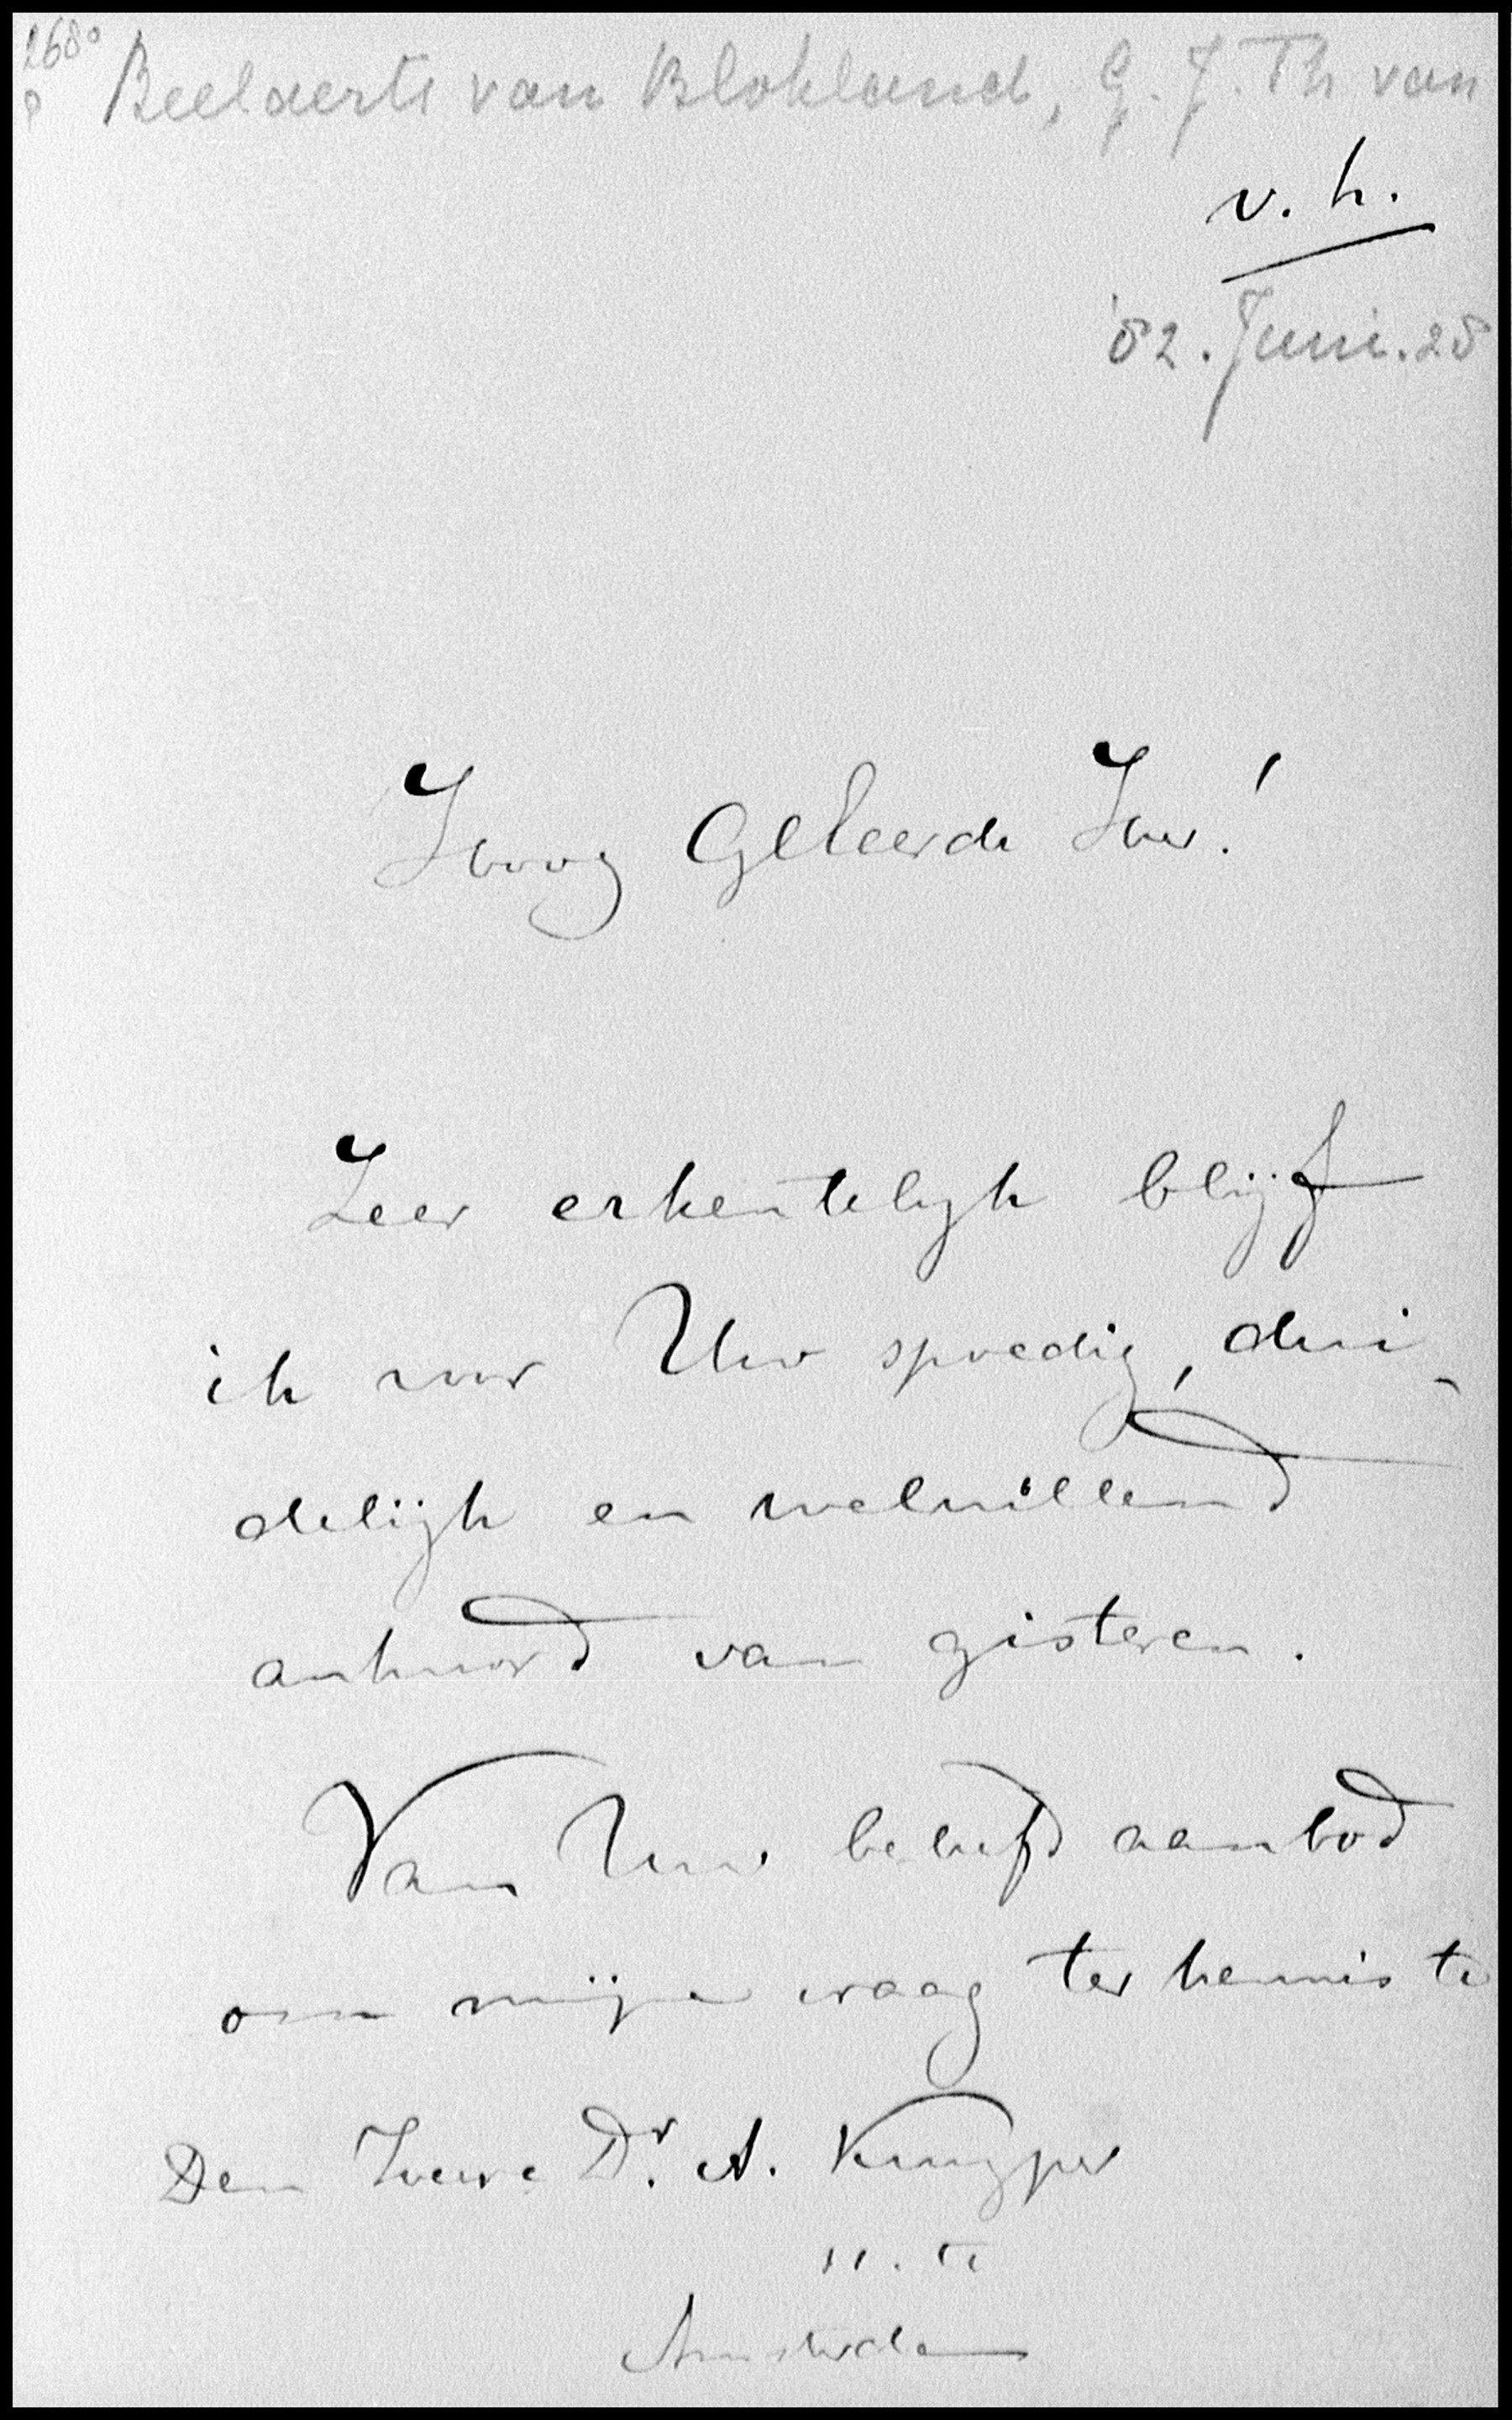 2680
Beelaerts van Blokland, G. J. Th van
v. h.
'82. Juni. 28
Hoog Geleerde Heer!
Zeer erkentelijk blijf
ik voor Uw spoedig, dui-
delijk en welwillend
antwoord van gisteren.
Van Uw beleefd aanbod
om mijn vraag ter kennis te
Den Heere Dr. A. Kuyper
te
Amsterdam